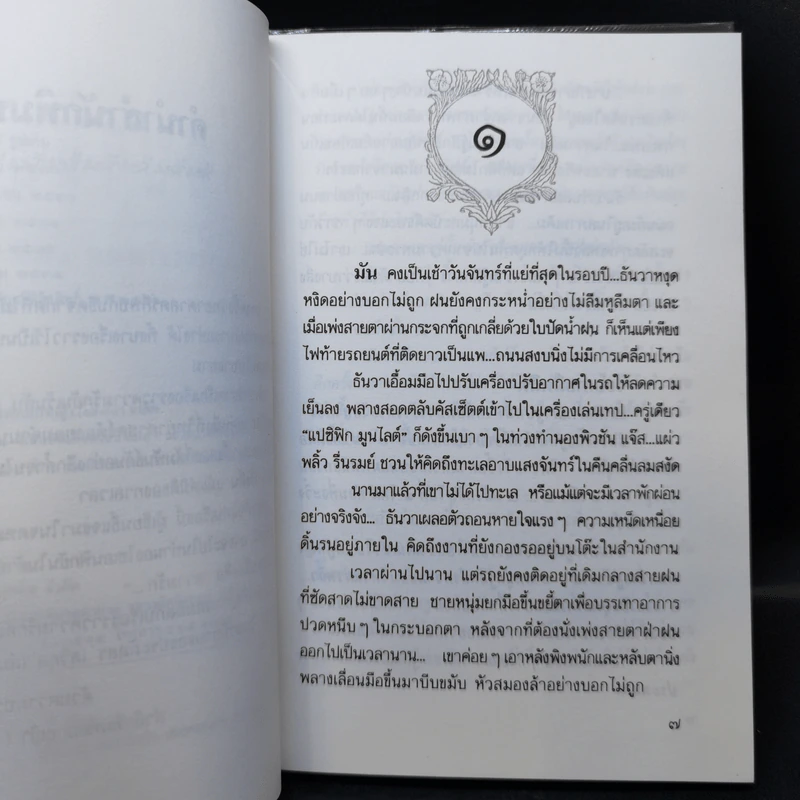 ๑
มัน คงเป็นเช้าวันจันทร์ที่แย่ที่สุดในรอบปี...ธันวาหงุด
หงิดอย่างบอกไม่ถูก ฝนยังคงกระหน่ำอย่างไม่ลืมหูลืมตา และ
เมื่อเพ่งสายตาผ่านกระจกที่ถูกเกลี่ยด้วยใบปัดน้ำฝน ก็เห็นแต่เพียง
ไฟท้ายรถยนต์ที่ติดยาวเป็นแพ...ถนนสงบนิ่งไม่มีการเคลื่อนไหว
ธันวาเอื้อมมือไปปรับเครื่องปรับอากาศในรถให้ลดความ
เย็นลง พลางสอดตลับคัสเซ็ตต์เข้าไปในเครื่องเล่นเทป...ครู่เดียว
“แปซิฟิก มูนไลต์” ก็ดังขึ้นเบา ๆ ในท่วงทำนองฟิวชัน แจ๊ส...แผ่ว
พลิ้ว รื่นรมย์ ชวนให้คิดถึงทะเลอาบแสงจันทร์ในคืนคลื่นลมสงัด
นานมาแล้วที่เขาไม่ได้ไปทะเล หรือแม้แต่จะมีเวลาพักผ่อน
อย่างจริงจัง... ธันวาเผลอตัวถอนหายใจแรง ๆ ความเหน็ดเหนื่อย
ดิ้นรนอยู่ภายใน คิดถึงงานที่ยังกองรออยู่บนโต๊ะในสำนักงาน
เวลาผ่านไปนาน แต่รถยังคงติดอยู่ที่เดิมกลางสายฝน
ที่ซัดสาดไม่ขาดสาย ชายหนุ่มยกมือขึ้นขยี้ตาเพื่อบรรเทาอาการ
ปวดหนึบ ๆ ในกระบอกตา หลังจากที่ต้องนั่งเพ่งสายตาฝ่าฝน
ออกไปเป็นเวลานาน... เขาค่อย ๆ เอาหลังพิงพนักและหลับตานิ่ง
พลางเลื่อนมือขึ้นมาบีบขมับ หัวสมองล้าอย่างบอกไม่ถูก
๗